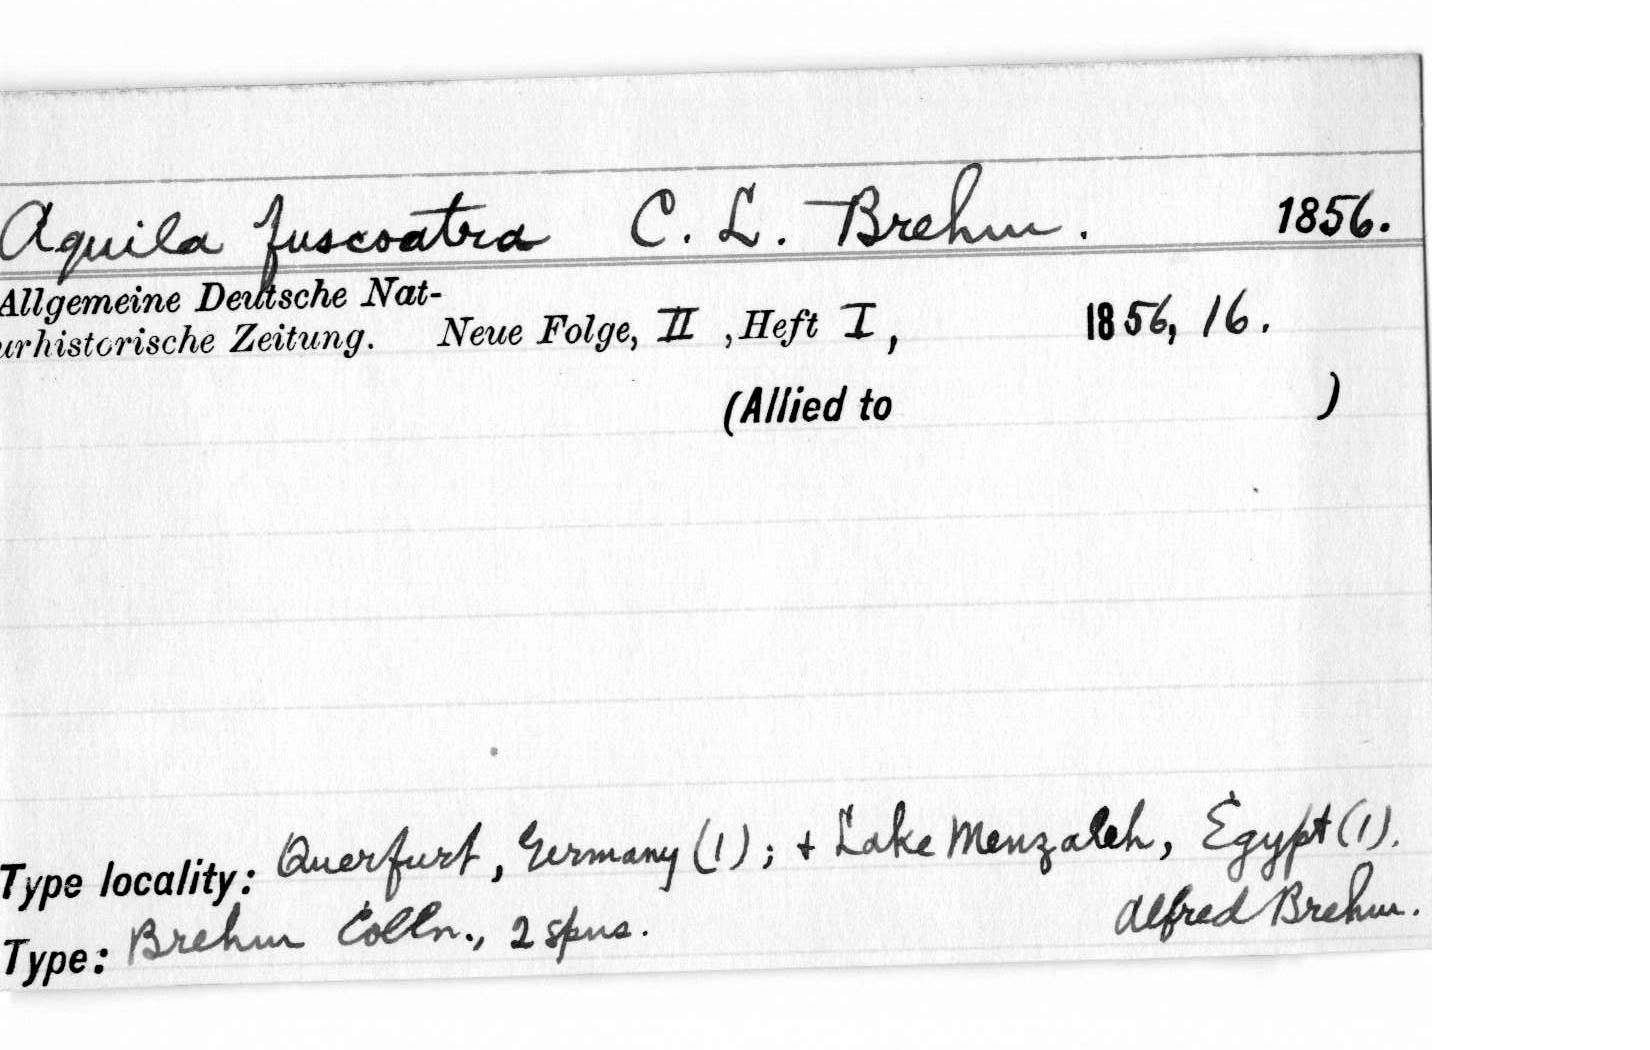 Aquila fuscoatra C. L. Brehm. 1856.
Allgemeine Deutsche Nat-
urhistorische Zeitung. Neue Folge, II, Heft I, 1856, 16.
(Allied to )
Type locality: Querfurt, Germany (1); + Lake Menzaleh, Egypt (1).
Alfred Brehm.
Type: Brehm Colln., 2 spns.